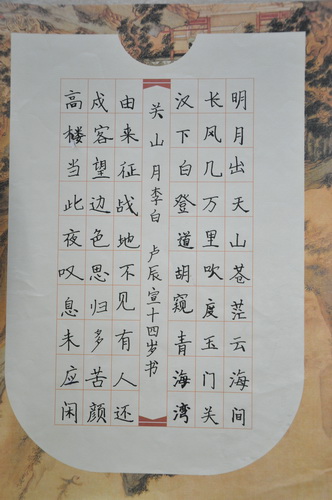 明月出天山苍茫云海间
长风几万里吹度玉门关
汉下白登道胡窥青海湾
关山月李白 卢辰宣十四岁书
由来征战地不见有人还
戍客望边色思归多苦颜
高楼当此夜叹息未应闲